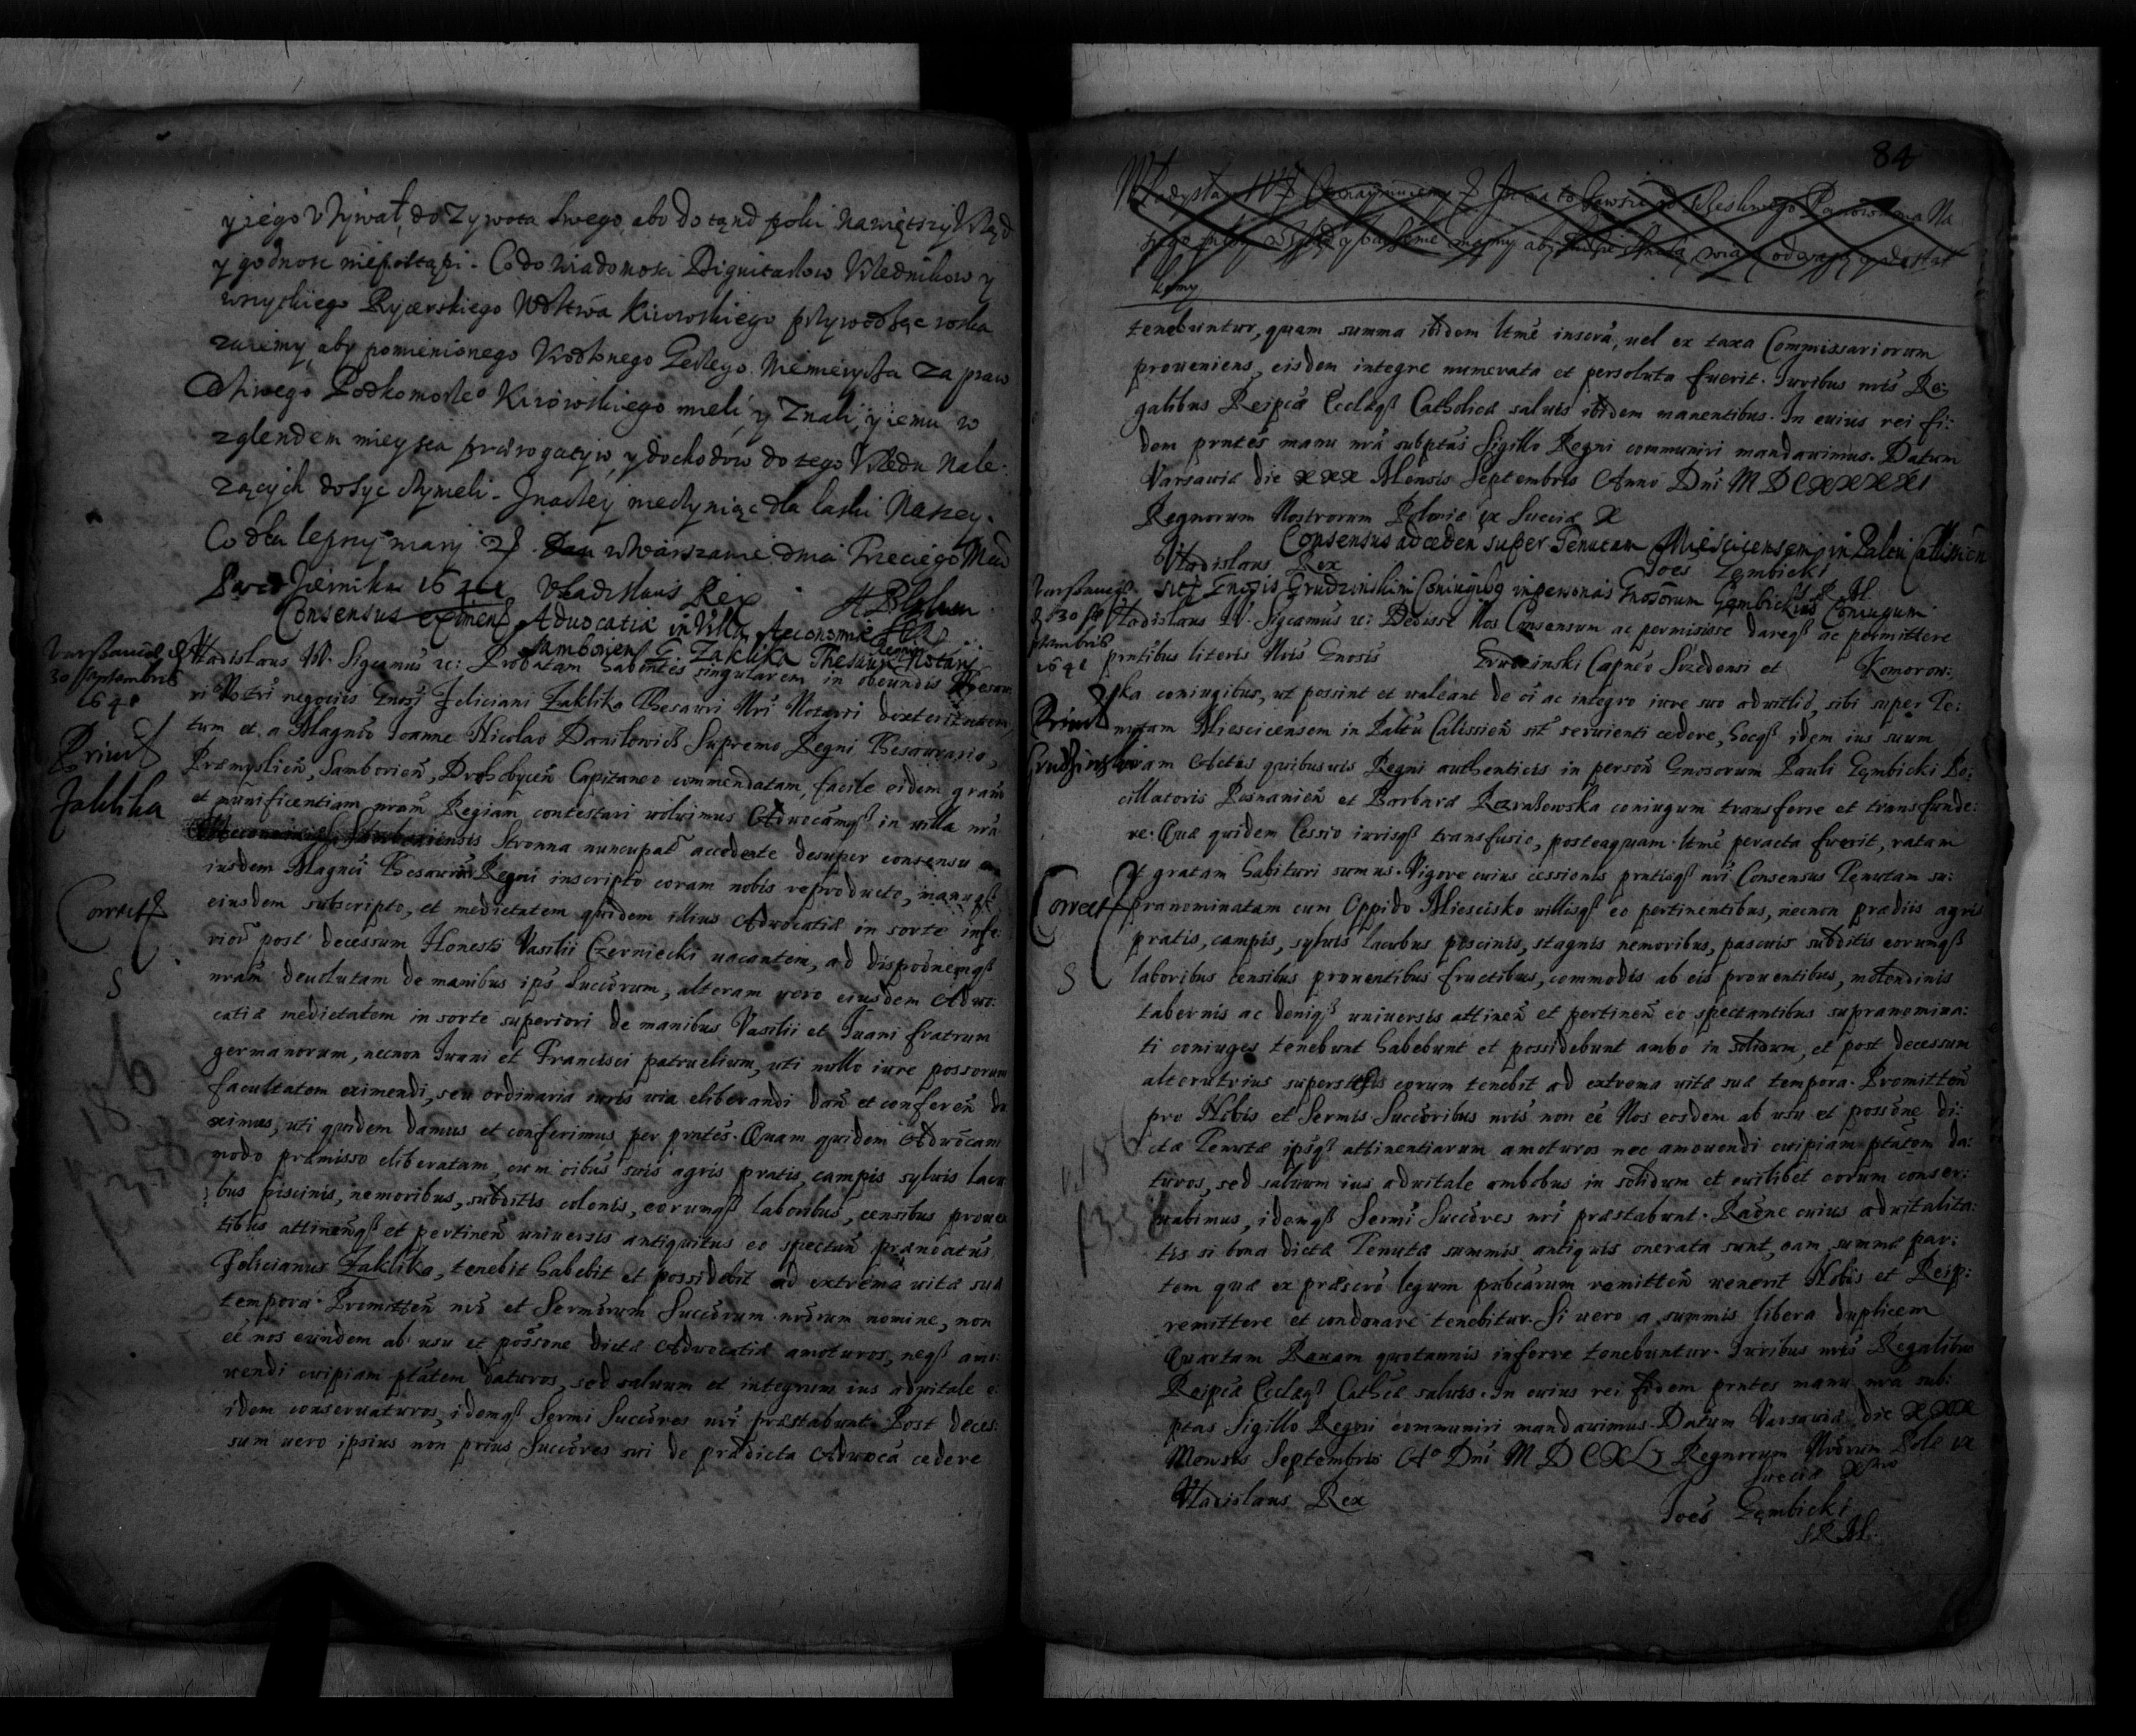 y iego Vzywał, do Zywota Swego, abo do tąnd poki Nawiętszy Vrząd
y godnosc niepostąpi. Co do Wiadomosci Dignitarzow Vrzednikow y
wszytkiego Rycerskiego Wdztwa Kiiowskiego przywodząc roska
zuiemy, aby pomienionego Vrodzonego Niemierycza za praw
dziwego Podkomorzeo Kiiowskiego mieli, y Znali, y iemu w
zglendem mieysca prærogatyw, y dochodow do tego Vrzedu Nale:
zących dosyc czyneli. Inaczey nieczyniąc dla łaski Naszey.
Co dla lepszy wiary Dan w Warszawie dnia Trzeciego
Pazdziernika 1641 Vladislaus Rex
Consensus eximend Advocatiæ in Villa Aeconomiæ
Samborien G. Zaklika Thesauri Regni Notary
Varsaviæ d
30 Septembris
1641
Vladislaus IV. Sigcamus etc: Probatam habentes singularem in obeundis Thesau
ri Nostri negociis Gnosi Feliciani Zaklika Thesauri Nri Notarii dexteritatem,
tum et a Magnco Joanne Nicolao Daniłowicz Supremo Regni Thesaurario,
Præmyslien, Samborien, Drohobycen Capitaneo commendatam, facile eidem gram
et munificentiam nram Regiam contestari volvimus Advocamqȝ in villa nra
Stronna nuncupat accedente desuper consensu
iusdem Magnci Thesaurii Regni inscripto coram nobis reproducto, manuqȝ
eiusdem subscripto, et medietatem quidem illius Advocatiæ in sorte infe
riori post decessum Honesti Vasilii Czerniecki vacantem, ad disponemqȝ
nram devolutam de manibus ips Succorum, alteram vero eiusdem Advo:
catiæ medietatem in sorte superiori de manibus Vasilii et Iuani fratrum
germanorum, necnon Iuani et Francisci patruelium, uti nullo iure possorum
facultatem eximendi, seu ordinaria iuris via eliberandi dan et conferen du
ximus, uti quidem damus et conferimus per pntes. Quam quidem Advocam
modo præmisso eliberatam, cum oibus suis agris pratis, campis sylvis lacu
bus piscinis, nemoribus, subditis colonis, eorumqȝ laboribus, censibus proven
tibus attinenqȝ et pertinen universis antiquitus eo spectan prænoatus
Felicianus Zaklika, tenebit habebit et possidebit ad extrema vitæ suæ
tempora. Promitten nro et Sermorum Succorum nrorum nomine, non
ee nos eundem ab usu et possone dictæ Advocatiæ amoturos, neqȝ amo
vendi cuipiam ptatem daturos, sed salvum et integrum ius advitale e:
idem conservaturos, idemqȝ Sermi Succores nri præstabunt. Post deces:
sum vero ipsius non prius Succores sui de prædicta Advoca cedere
Priuil
Zaklika
Correct
S
186
f 358
84
tenebuntur, quam summa ibidem ltme inscra, vel ex taxa Commissariorum
proveniens, eisdem integre numerata et persoluta fuerit. Iuribus nris Re:
galibus Reipcæ Ecclæqȝ Catholicæ salvis ibidem manentibus. In cuius rei fi:
dem pntes manu nra subptas Sigillo Regni communiri mandavimus. Datum
Varsaviæ die XXX Mensis Septembris Anno Dni MDCXXXXI
Regnorum Nostrorum Poloniæ IX Sueciæ X
Vladislaus Rex
Joes Gembicki
Consensus ad ceden super Tenutam Miescicensem in Paltu Calissien
sitt Gnosis Grudzinskim Coniugibȝ in personas Gnosorum Gembickich Coniugum
Varsaviæ
d 30 Se
ptembris
1641
Vladislaus IV. Sigcamus etc: Dedisse Nos Consensum ac permisisse dareqȝ ac permittere
pntibus literis Nris Gnosis Grudzinski Capneo Srzedensi et Komorow:
ska coniugibus, ut possint et valeant de oi ac integro iure suo advitlio, sibi super Te:
nutam Miescicensem in Paltu Calissien sit servienti cedere, hocqȝ idem ius suum
coram Actis quibusvis Regni authenticis in person Gnosorum Pauli Gembicki Po:
cillatoris Posnanien et Barbaræ coniugum transferre et transfunde:
re. Quæ quidem Cessio iurisqȝ transfusio, posteaquam ltme peracta fuerit, ratam
et gratam habituri sumus. Vigore cuius cessionis pntisqȝ nri Consensus Tenutam su:
pranominatam cum Oppido Miescisko villisqȝ eo pertinentibus, necnon prædiis agris
pratis, campis, sylvis lacubus piscinis, stagnis nemoribus, pascuis subditis eorumqȝ
laboribus censibus proventibus fructibus, commodis ab eis proventibus, molendinis
tabernis ac deniqȝ universis attinen et pertinen eo spectantibus supranomina:
ti coniuges tenebunt habebunt et possidebunt ambo in solidum, et post decessum
alterutrius superstes eorum tenebit ad extrema vitæ suæ tempora. Promitten
pro Nobis et Sermis Succoribus nris non ee Nos eosdem ab usu et possone di:
ctæ Tenutæ ipsqȝ attinentiarum amoturos nec amovendi cuipiam ptatem da:
turos, sed salvum ius advitale ambobus in solidum et cuilibet eorum conser:
vabimus, idemqȝ Sermi Succores nri præstabunt. Raone cuius advitalita:
tis si bona dictæ Tenutæ summis antiquis onerata sunt, eam summæ par:
tem quæ ex præscro legum pubcarum remitten venerit Nobis et Reip:
remittere et condonare tenebitur. Si vero a summis libera duplicem
Quartam Ravam quotannis inferre tenebuntur. Iuribus nris Regalibus
Reipcæ Ecclæqȝ Cathcæ salvis. In cuius rei fidem pntes manu nra sub:
ptas Sigillo Regni communiri mandavimus. Datum Varsaviæ die XXX
Mensis Septembris Ao Dni MDCXLI Regnorum Nrorum Polo IX
Sueciæ Xmo
Vladislaus Rex
Joes Gembicki
SRM
Priuil
Grudzinskim
Correct
S
186
f 358